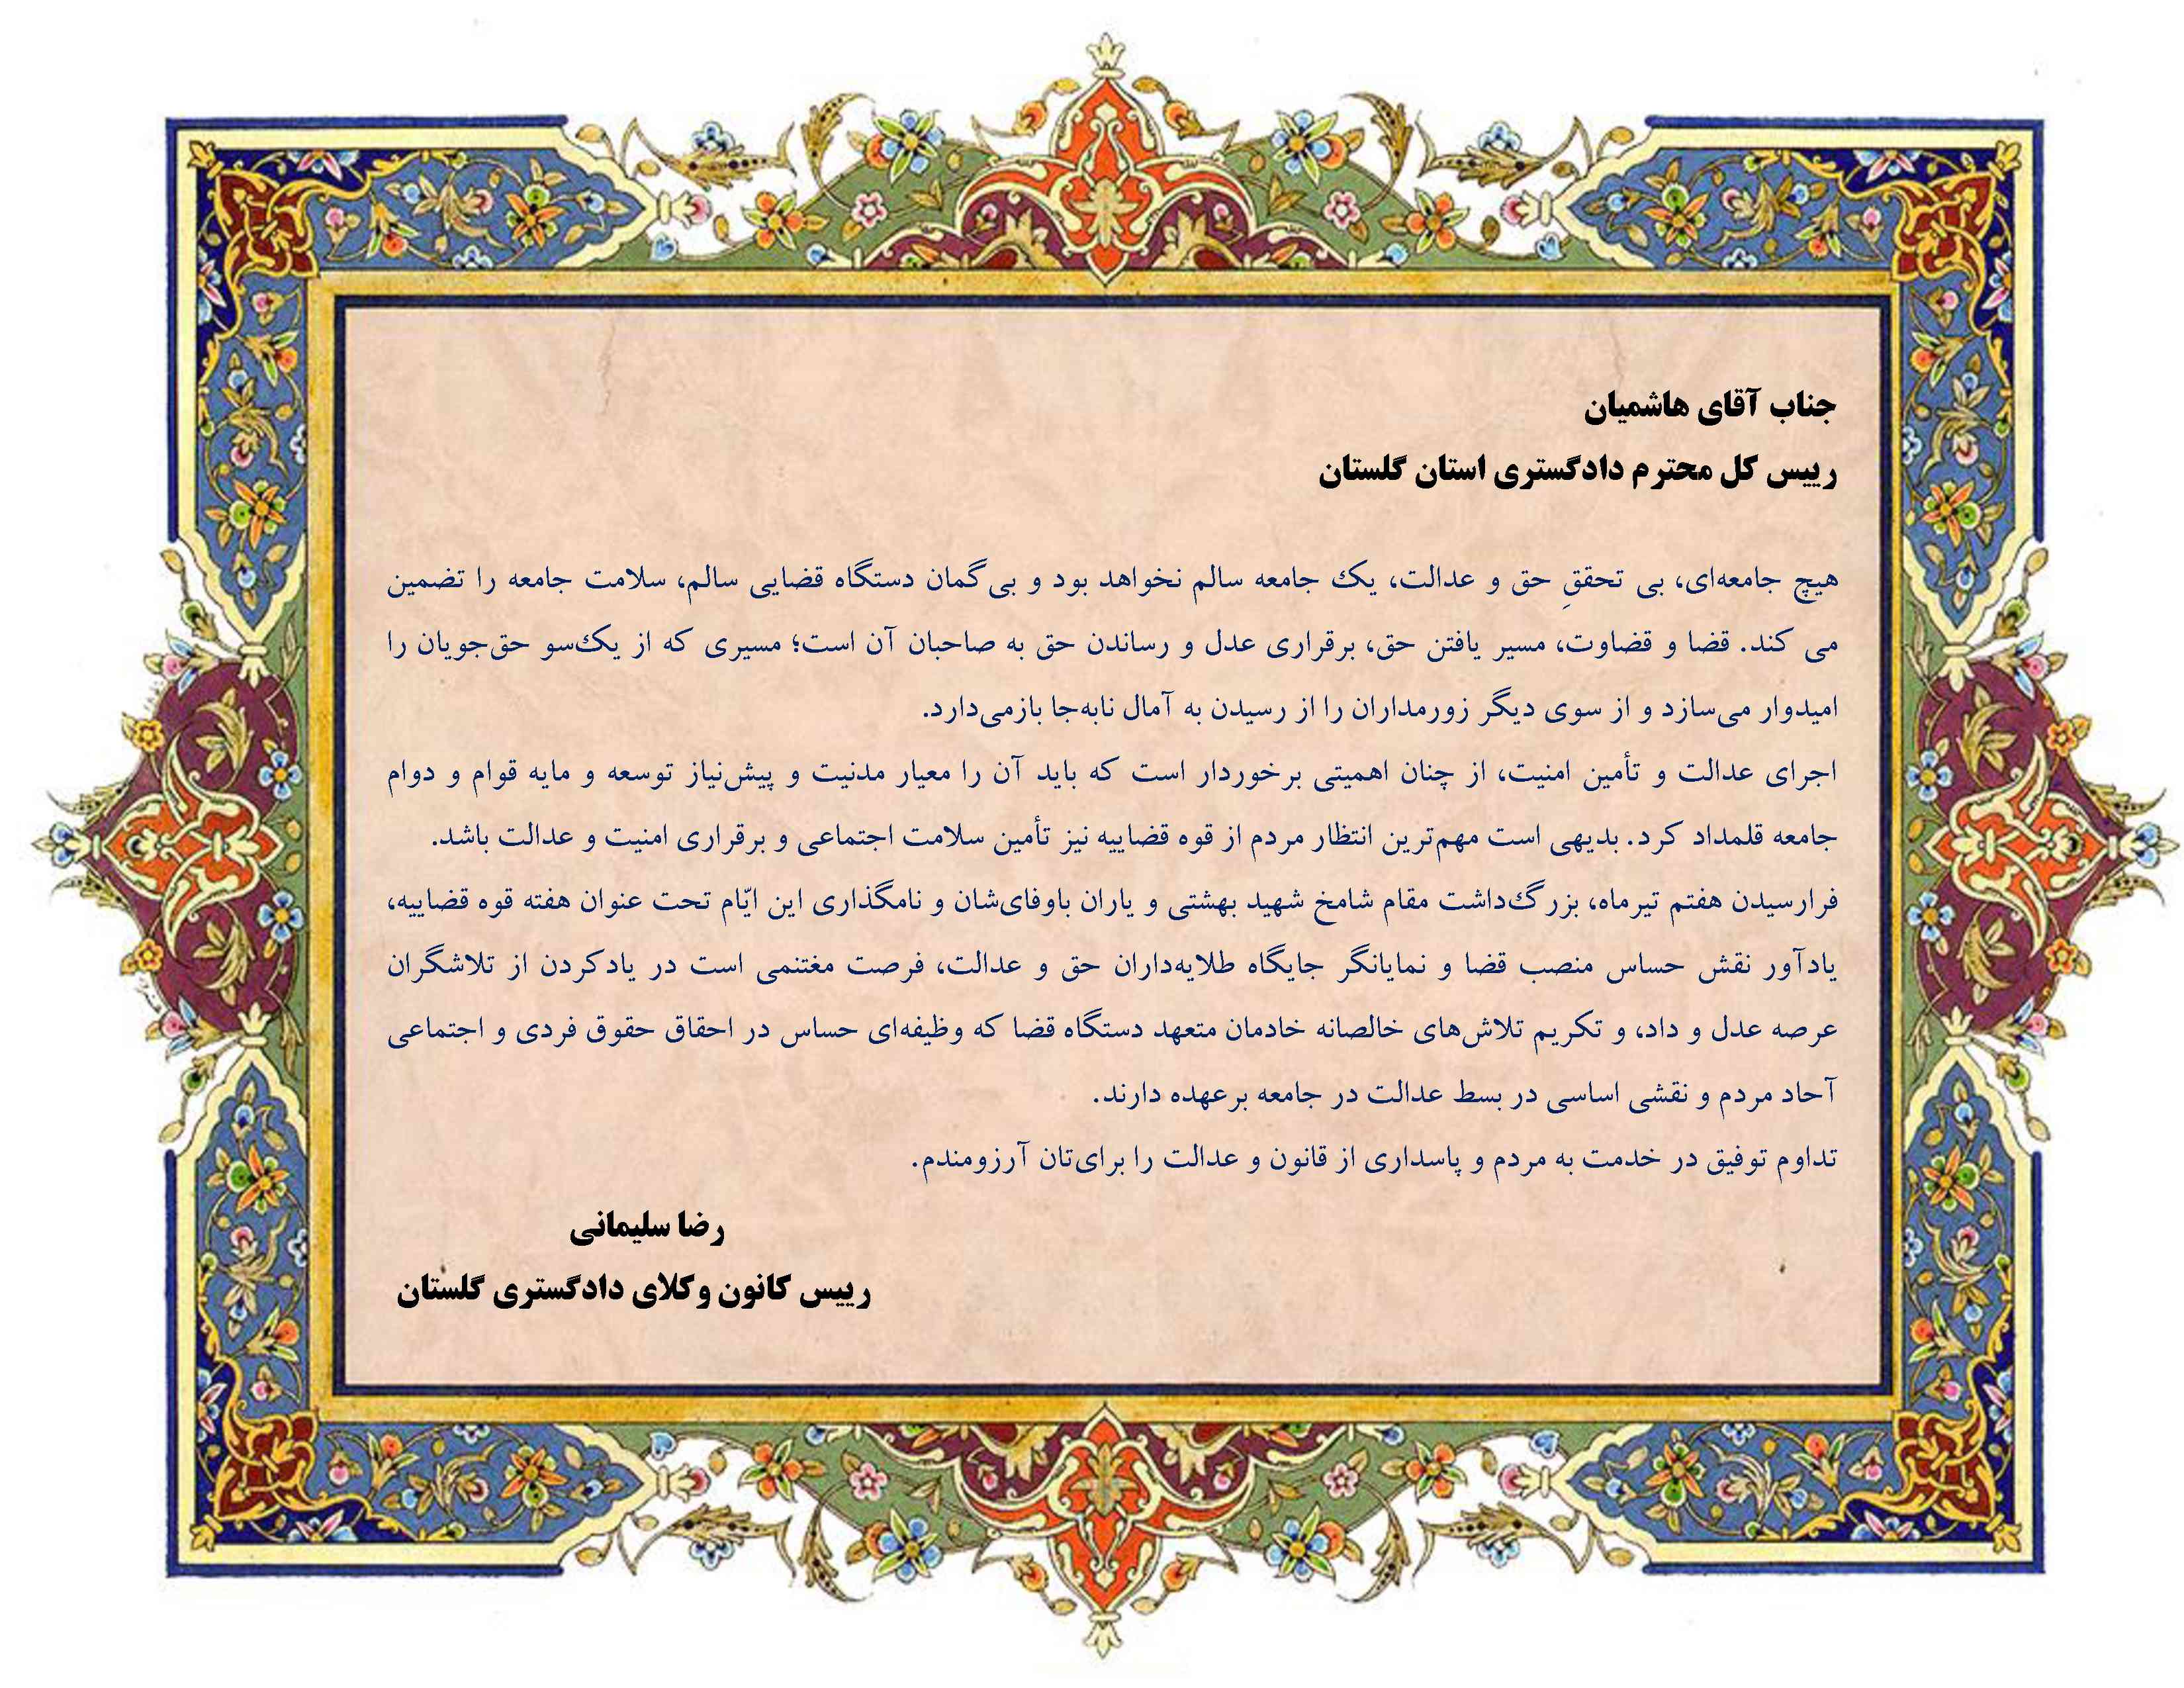 جناب آقای هاشمیان
رییس کل محترم دادگستری استان گلستان
هیچ جامعه‌ای، بی تحققِ حق و عدالت، یک جامعه سالم نخواهد بود و بی‌گمان دستگاه قضایی سالم، سلامت جامعه را تضمین
می کند. قضا و قضاوت، مسیر یافتن حق، برقراری عدل و رساندن حق به صاحبان آن است؛ مسیری که از یک‌سو حق‌جویان را
امیدوار می‌سازد و از سوی دیگر زورمداران را از رسیدن به آمال نابه‌جا بازمی‌دارد.
اجرای عدالت و تأمین امنیت، از چنان اهمیتی برخوردار است که باید آن را معیار مدنیت و پیش‌نیاز توسعه و مایه قوام و دوام
جامعه قلمداد کرد. بدیهی است مهم‌ترین انتظار مردم از قوه قضاییه نیز تأمین سلامت اجتماعی و برقراری امنیت و عدالت باشد.
فرارسیدن هفتم تیرماه، بزرگ‌داشت مقام شامخ شهید بهشتی و یاران باوفای‌شان و نامگذاری این ایّام تحت عنوان هفته قوه قضاییه،
یادآور نقش حساس منصب قضا و نمایانگر جایگاه طلایه‌داران حق و عدالت، فرصت مغتنمی است در یادکردن از تلاشگران
عرصه عدل و داد، و تکریم تلاش‌های خالصانه خادمان متعهد دستگاه قضا که وظیفه‌ای حساس در احقاق حقوق فردی و اجتماعی
آحاد مردم و نقشی اساسی در بسط عدالت در جامعه برعهده دارند.
تداوم توفیق در خدمت به مردم و پاسداری از قانون و عدالت را برای‌تان آرزومندم.
رضا سلیمانی
رییس کانون وکلای دادگستری گلستان